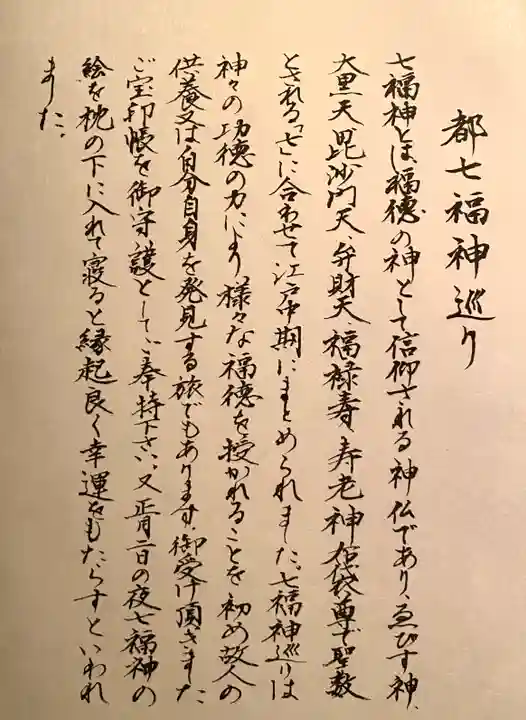 都七福神巡り
七福神とは福徳の神として信仰される神仏であり、ゑびす神、
大黒天、毘沙門天、弁財天、福禄寿、寿老神、布袋尊で聖数
とされる「七」に合わせて江戸中期にまとめられました。七福神巡りは
神々の功徳の力により、様々な福徳を授かれることを初め故人の
供養又は自分自身を発見する旅でもあります。御受け頂きました
ご宝印帳を御守護としてご奉持下さい。又正月二日の夜七福神の
絵を枕の下に入れて寝ると縁起良く幸運をもたらすといわれ
ました。